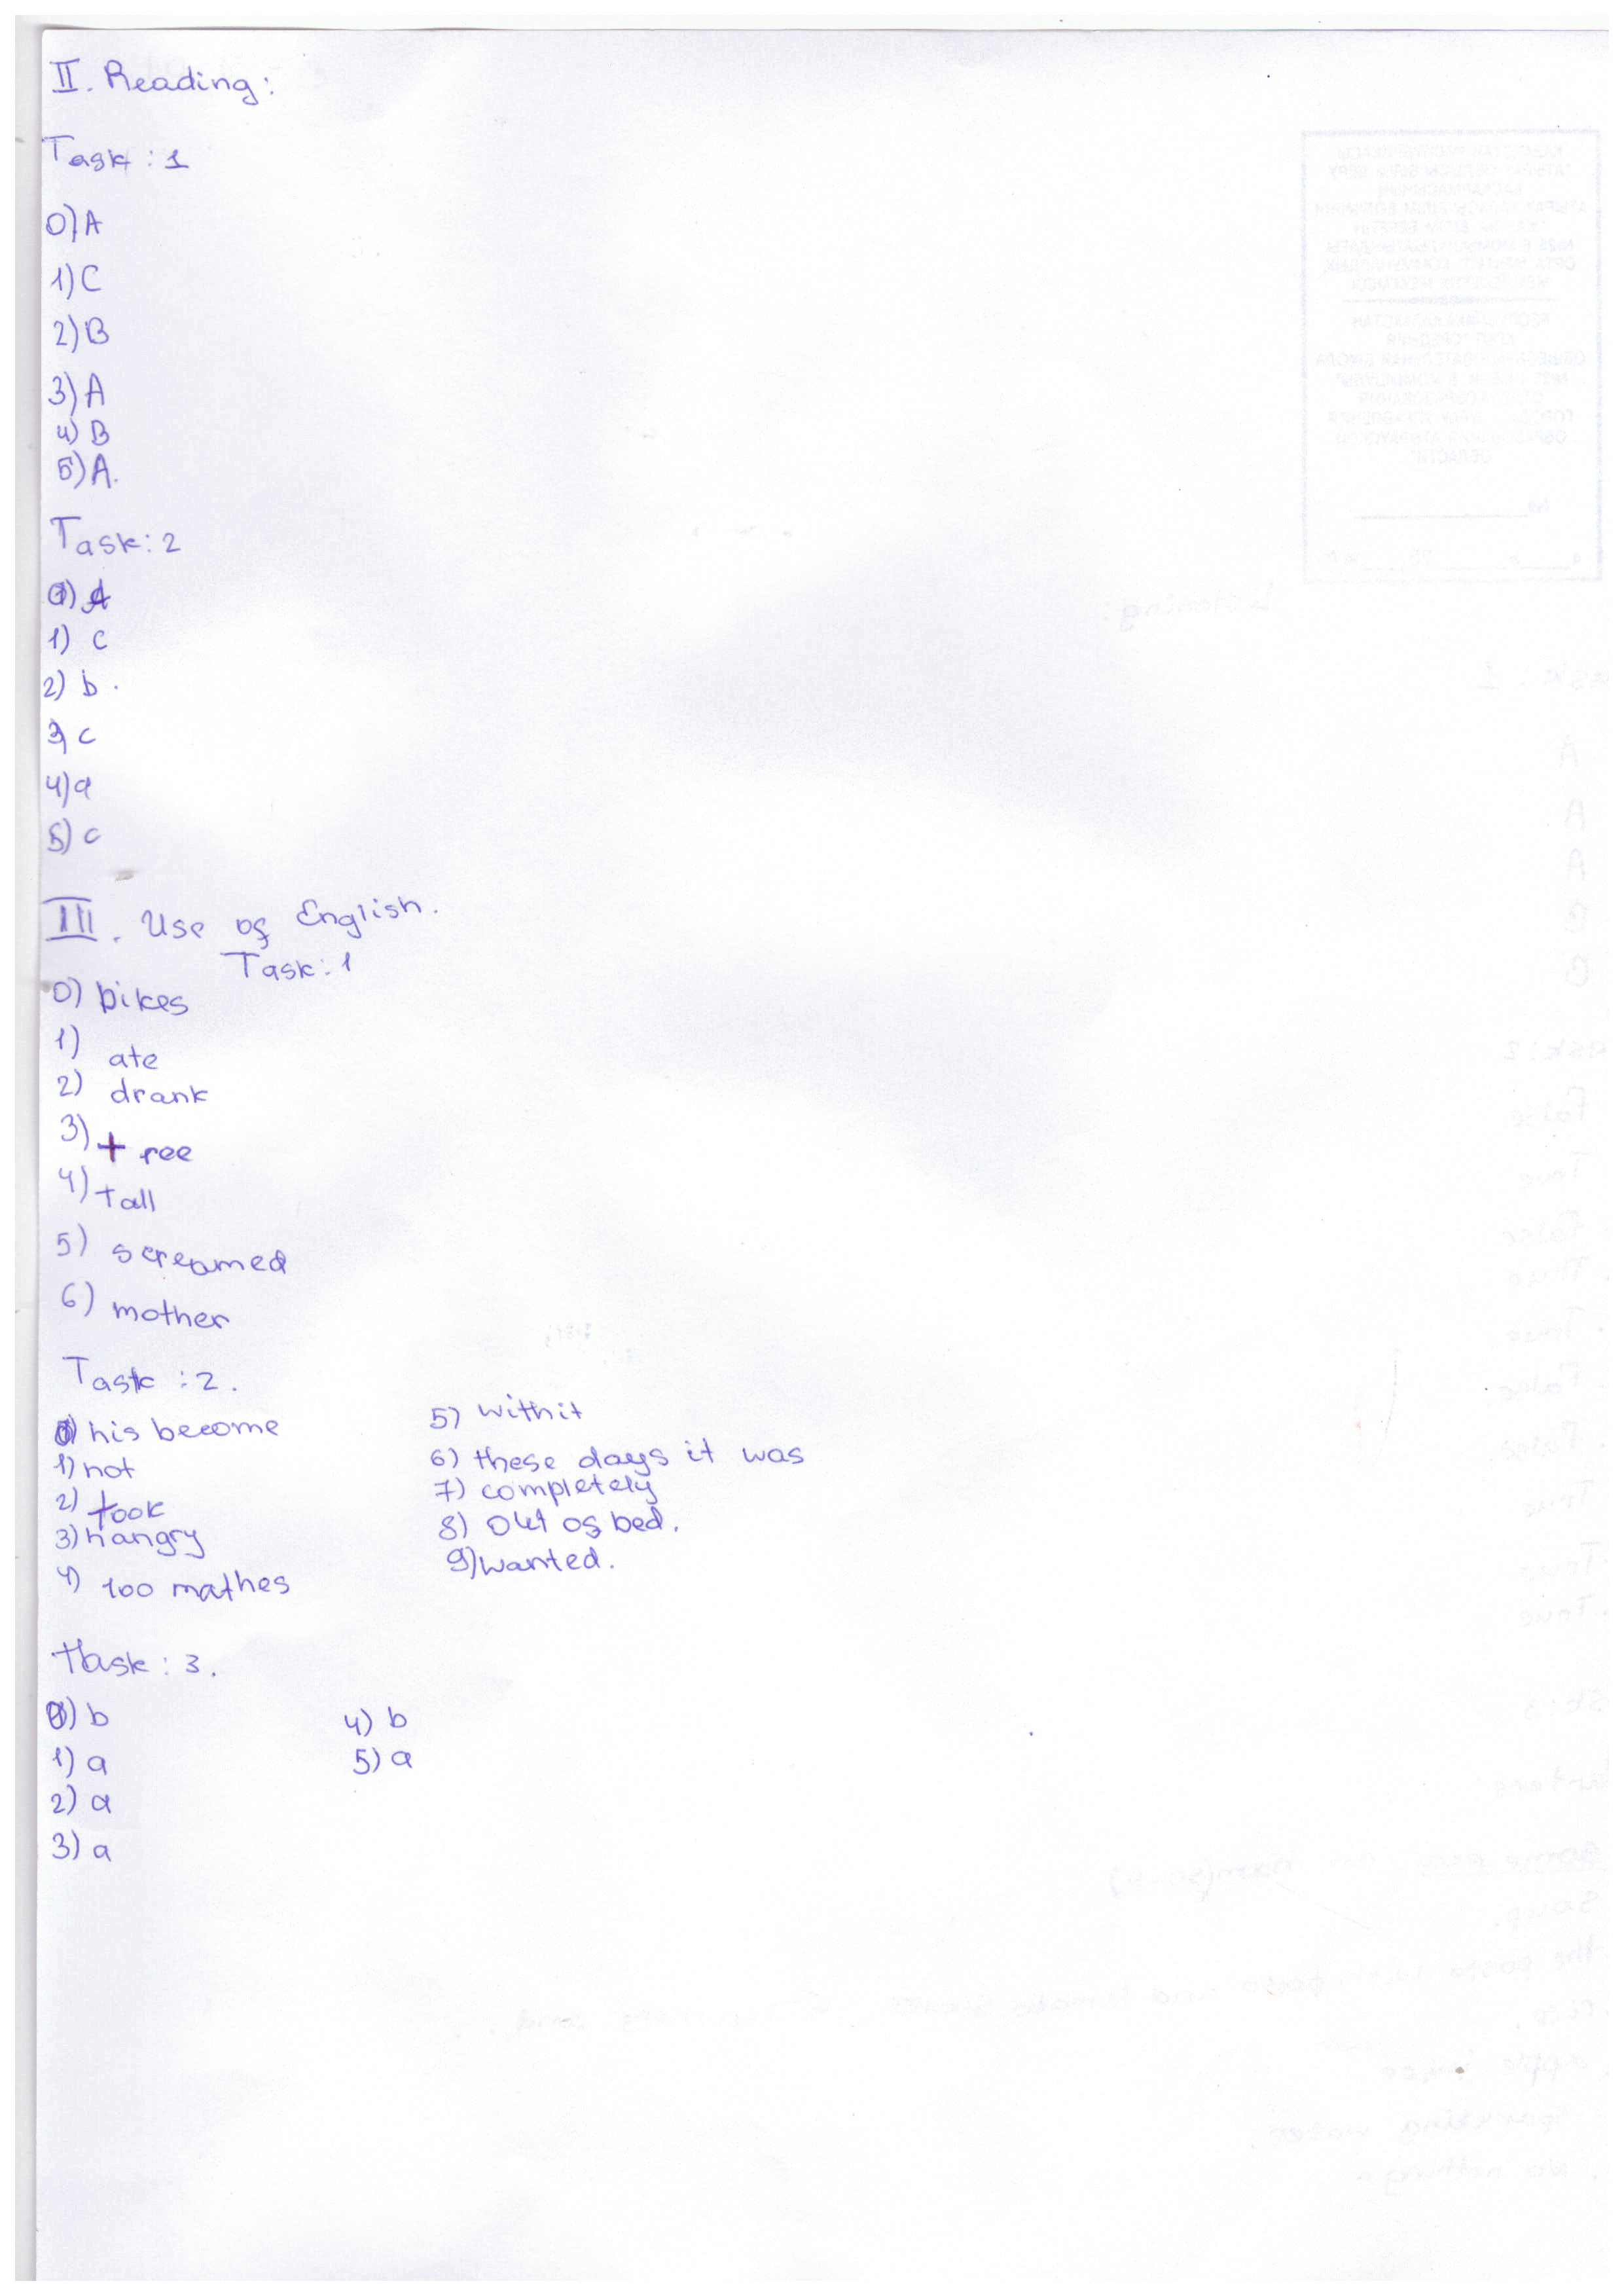 II. Reading:
Task : 1
0) A
1) C
2) B
3) A
4) B
5) A.
Task: 2
0) A
1) c
2) b.
3) c
4) a
5) c
III. Use of English.
Task: 1
0) bikes
1) ate
2) drank
3) tree
4) tall
5) screamed
6) mother
Task : 2.
0) his become
1) not
2) took
3) hangry
4) too mathes
5) withit
6) these days it was
7) completely
8) Out of bed.
9) wanted.
Task : 3.
0) b
1) a
2) a
3) a
4) b
5) a